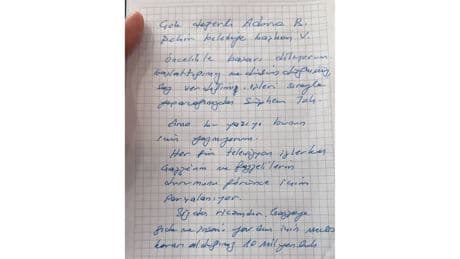 Çok değerli Adana B.
şehir belediye başkan V.
Öncelikle başarı diliyorum
başlattığınız
söz verdiğiniz işleri sırayla
yapacağınızdan şüphem yok
Ama bu yazıyı bunun
için yazmıyorum.
Her gün televizyon izlerken
Gazze'nin ve Gazzelilerin
durumunu görünce içim
parçalanıyor.
Sizden ricamdır, Gazzeye
gıda ve insani yardım için meclis
kararı aldığınız 10 milyonluk